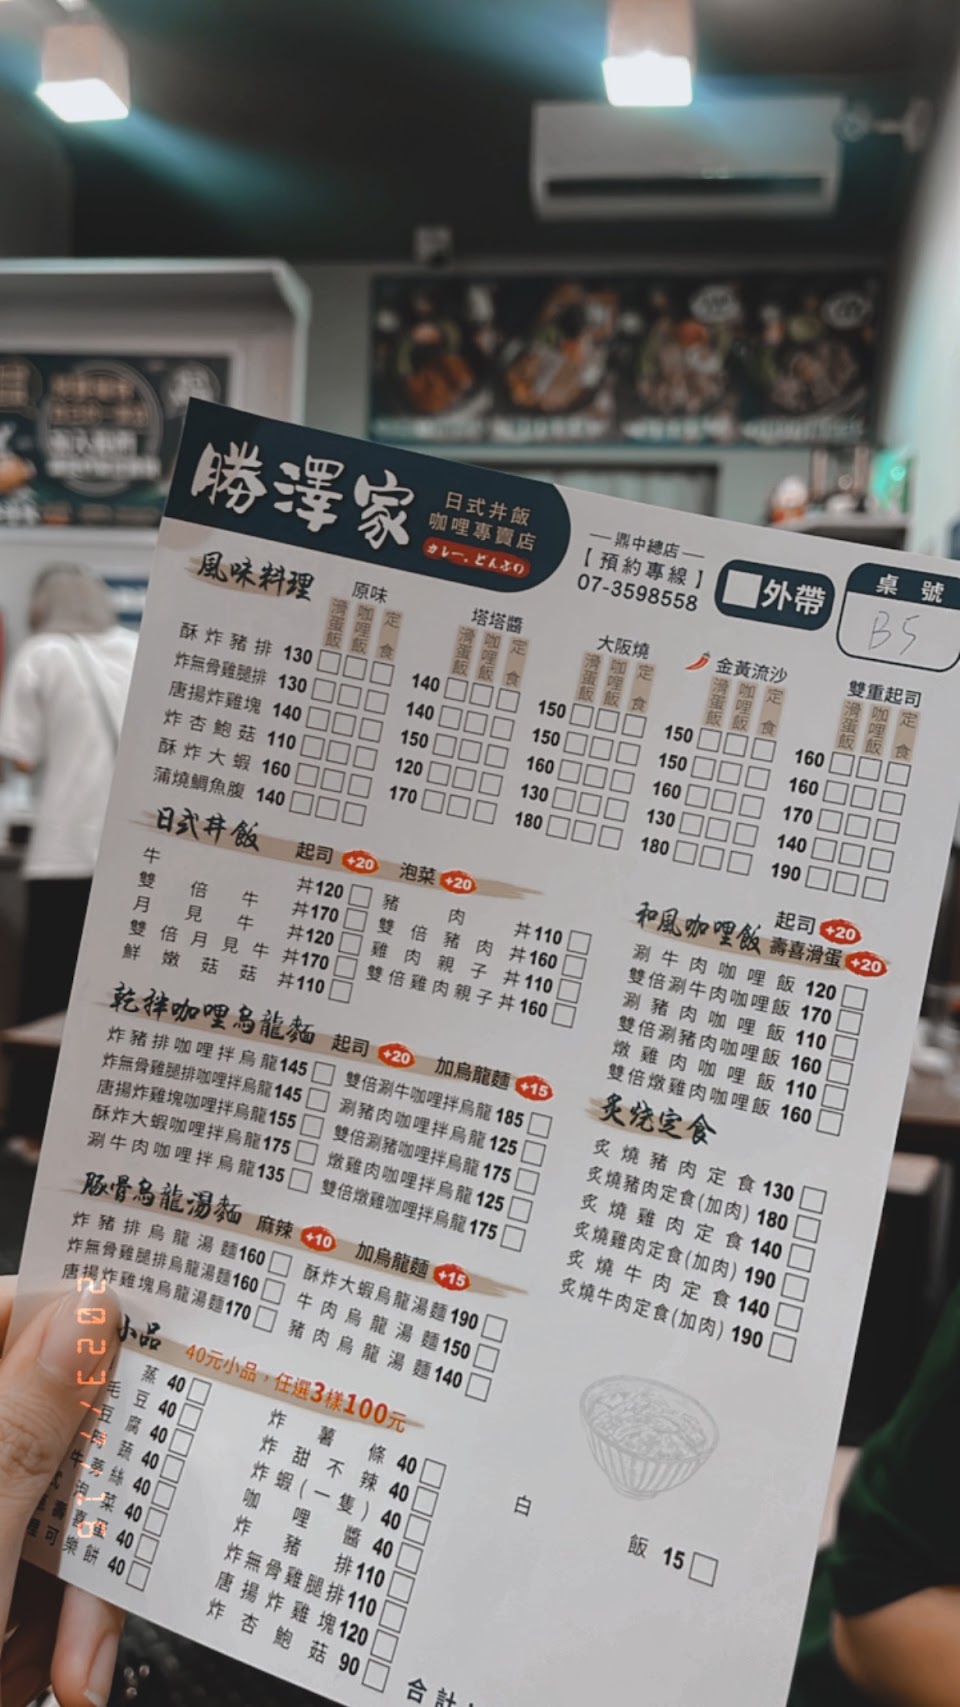 勝澤家
日式丼飯
咖哩專賣店
カレー、どんぶり
鼎中總店
【預約專線】
07-3598558
外帶
桌號
B5
風味料理
原味 滑蛋飯 咖哩飯 定食
塔塔醬 滑蛋飯 咖哩飯 定食
大阪燒 滑蛋飯 咖哩飯 定食
金黃流沙 滑蛋飯 咖哩飯 定食
雙重起司 滑蛋飯 咖哩飯 定食
酥炸豬排 130 140 150 150 160
炸無骨雞腿排 130 140 150 150 160
唐揚炸雞塊 140 150 160 160 170
炸杏鮑菇 110 120 130 130 140
酥炸大蝦 160 170 180 180 190
蒲燒鯛魚腹 140
日式丼飯 起司+20 泡菜+20
牛丼 120
雙倍牛丼 170
月見牛丼 120
雙倍月見牛丼 170
鮮嫩菇菇丼 110
豬肉丼 110
雙倍豬肉丼 160
雞肉親子丼 110
雙倍雞肉親子丼 160
和風咖哩飯 起司+20 壽喜滑蛋+20
涮牛肉咖哩飯 120
雙倍涮牛肉咖哩飯 170
涮豬肉咖哩飯 110
雙倍涮豬肉咖哩飯 160
燉雞肉咖哩飯 110
雙倍燉雞肉咖哩飯 160
乾拌咖哩烏龍麵 起司+20 加烏龍麵+15
炸豬排咖哩拌烏龍 145
炸無骨雞腿排咖哩拌烏龍 145
唐揚炸雞塊咖哩拌烏龍 155
酥炸大蝦咖哩拌烏龍 175
涮牛肉咖哩拌烏龍 135
雙倍涮牛咖哩拌烏龍 185
涮豬肉咖哩拌烏龍 125
雙倍涮豬咖哩拌烏龍 175
燉雞肉咖哩拌烏龍 125
雙倍燉雞咖哩拌烏龍 175
炙燒定食
炙燒豬肉定食 130
炙燒豬肉定食(加肉) 180
炙燒雞肉定食 140
炙燒雞肉定食(加肉) 190
炙燒牛肉定食 140
炙燒牛肉定食(加肉) 190
豚骨烏龍湯麵 麻辣+10 加烏龍麵+15
炸豬排烏龍湯麵 160
炸無骨雞腿排烏龍湯麵 160
唐揚炸雞塊烏龍湯麵 170
酥炸大蝦烏龍湯麵 190
牛肉烏龍湯麵 150
豬肉烏龍湯麵 140
小品 40元小品，任選3樣100元
蒸 40
毛豆 40
豆腐 40
時蔬 40
牛蒡絲 40
泡菜 40
壽喜蛋 40
可樂餅 40
炸薯條 40
炸甜不辣 40
炸蝦(一隻) 40
咖哩醬 40
炸豬排 110
炸無骨雞腿排 110
唐揚炸雞塊 120
炸杏鮑菇 90
白飯 15
合計
2023/11/16